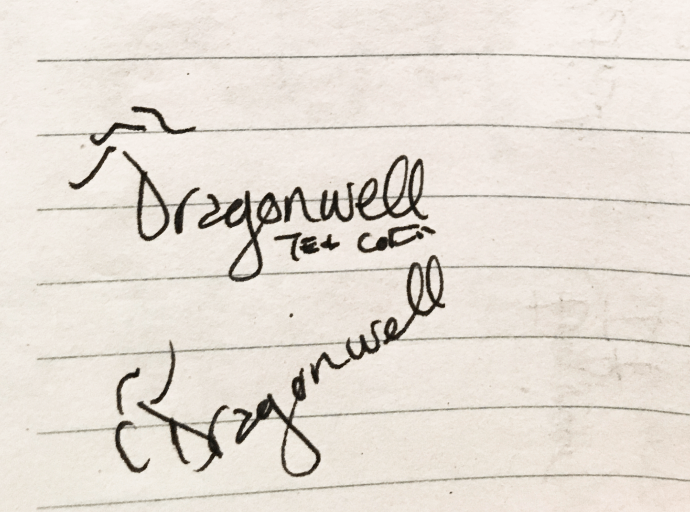 Dragonwell
Dragonwell